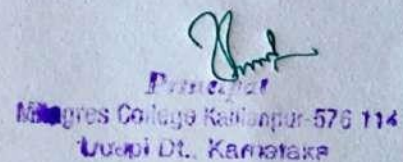 Principal
Milagres College Kallianpur-576 114
Udupi Dt., Karnataka